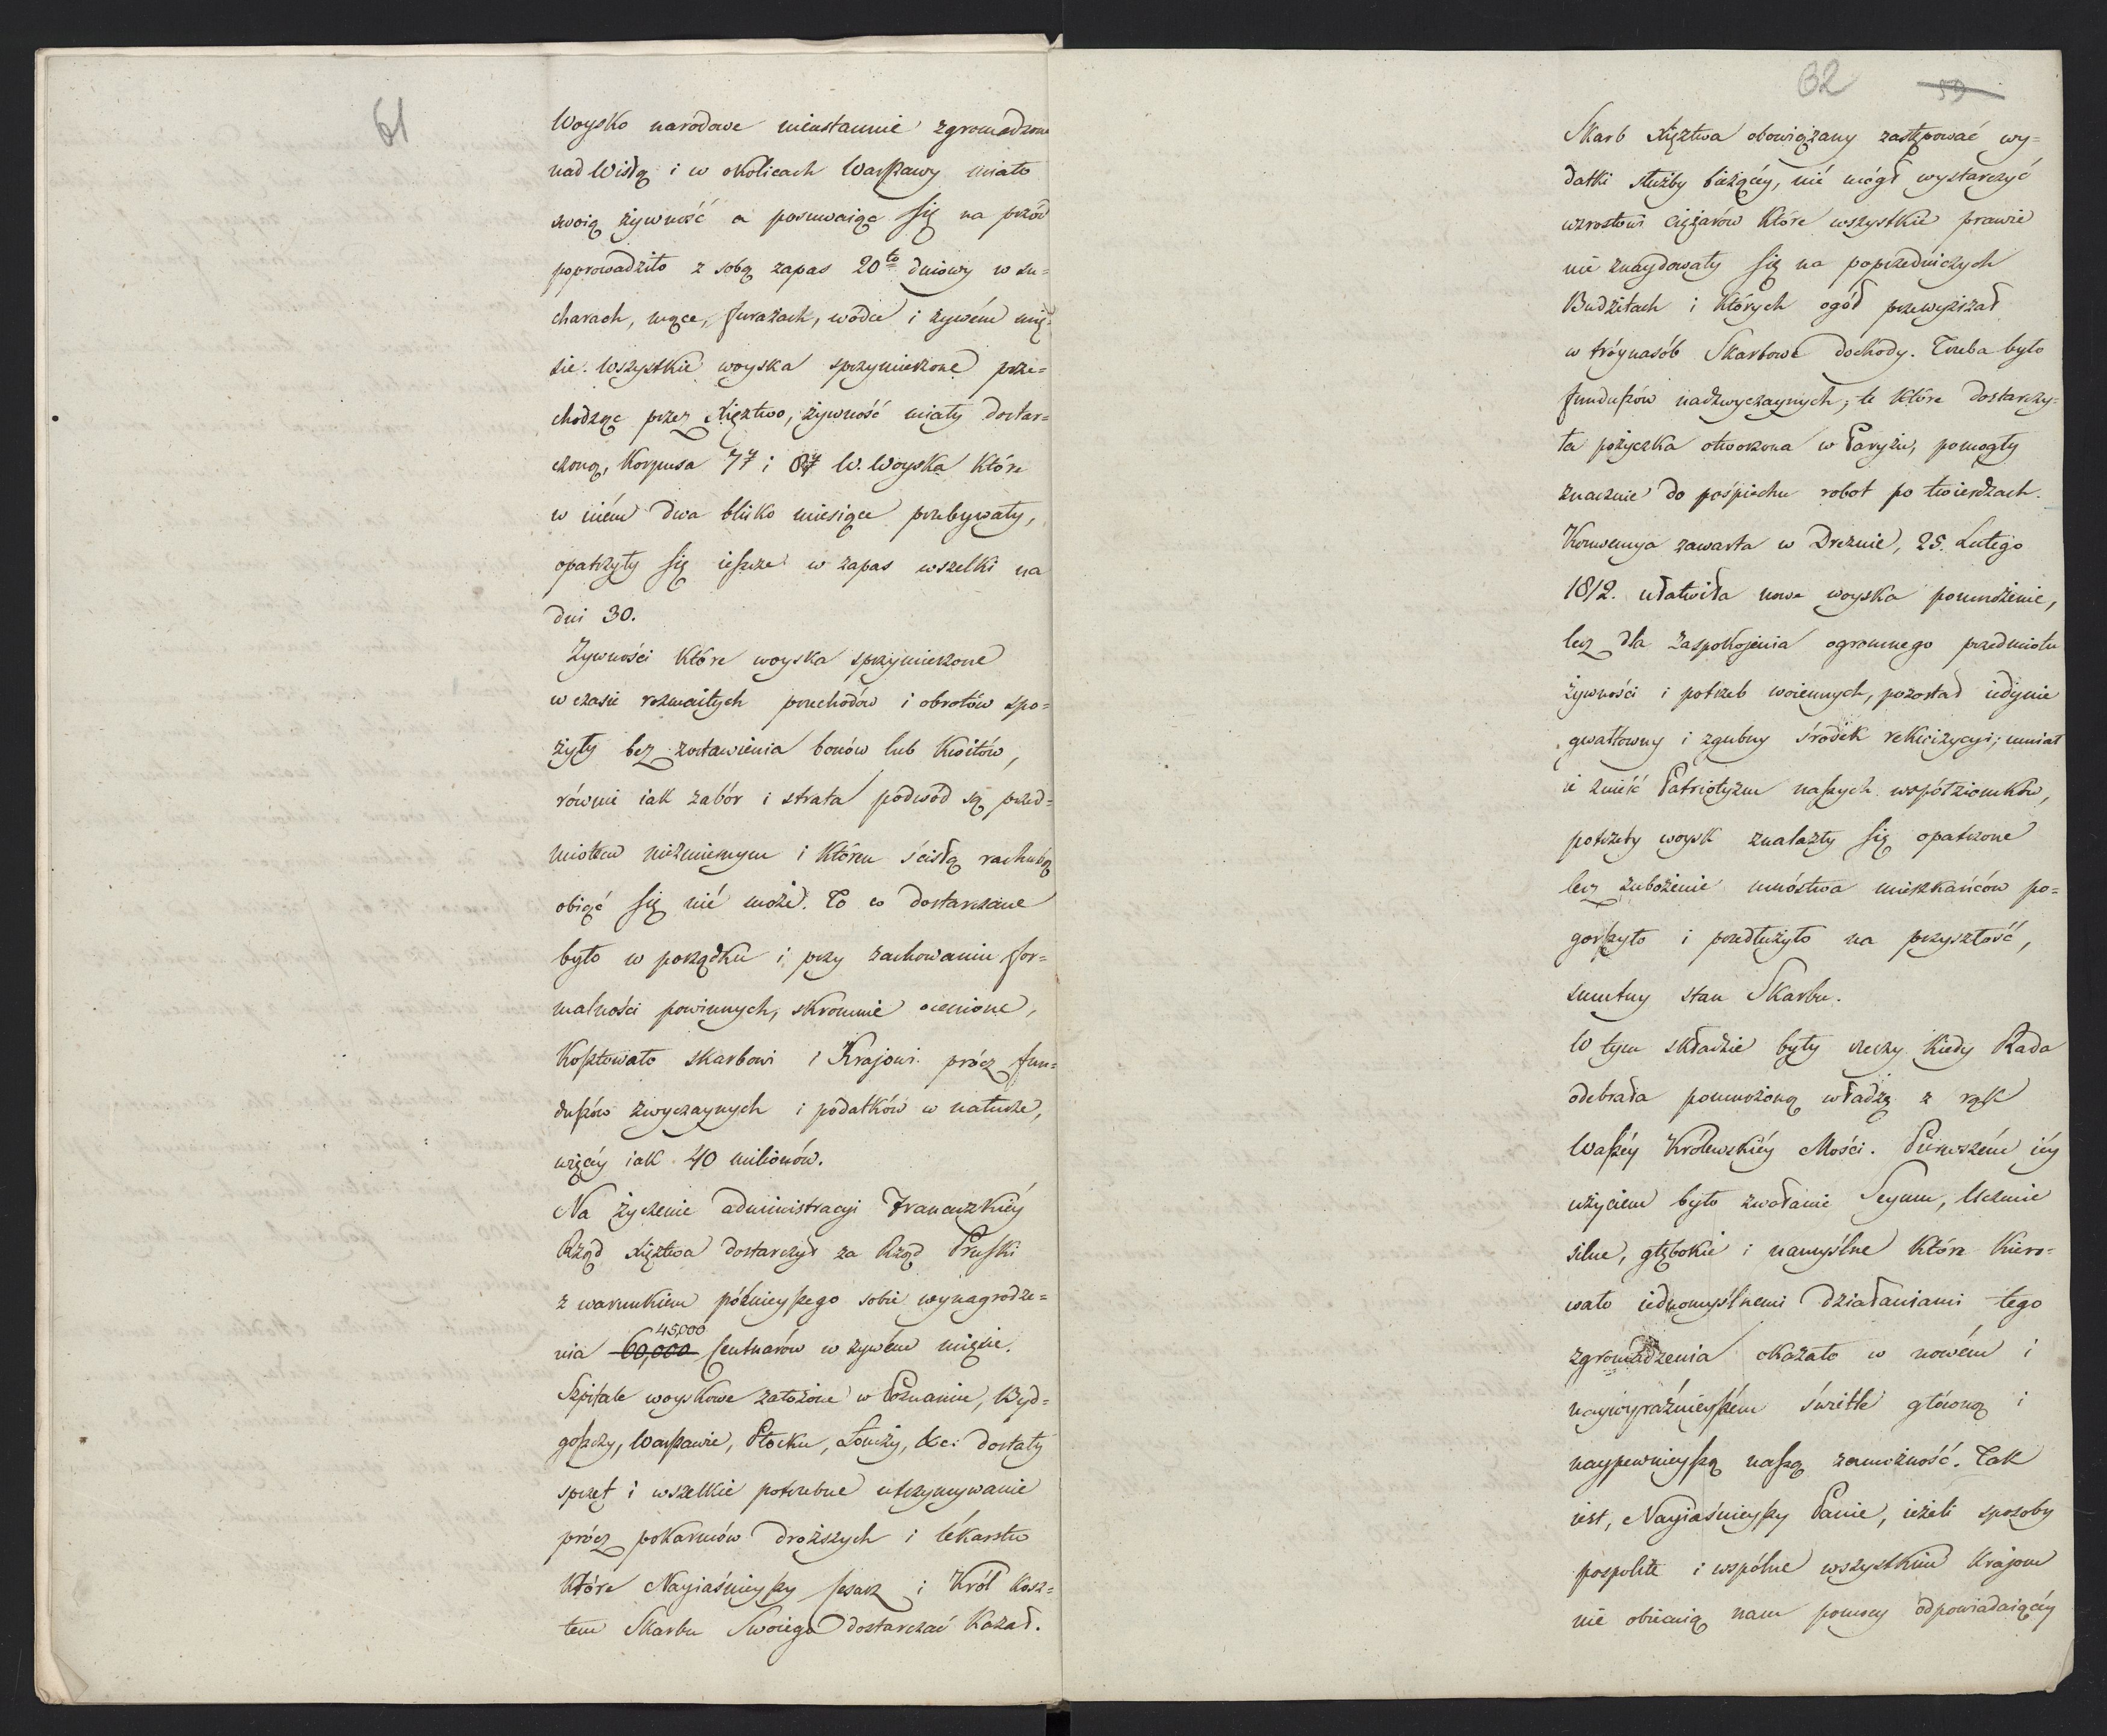 61
Woysko narodowe nieustannie zgromadzone
nad Wisłą i w okolicach Warszawy miało
swoię żywność a posuwaiąc się na przód
poprowadziło z sobą zapas 20to dniowy w su=
charach, mące, furażach, wódce i żywém mię=
sie. Wszystkie woyska sprzymierzone prze=
chodząc przez Xięztwo, żywność miały dostar=
czoną, Korpusa 7y i 8y W. Woyska które
w niém dwa blisko miesiące przebywały,
opatrzyły się ieszcze w zapas wszelki na
dni 30.
Żywności które woyska sprzymierzone
w czasie rozmaitych przechodów i obrotów spo=
żyły bez zostawienia bonów lub kwitów,
równie iak zabór i strata podwód są przed=
miotem niezmiernym i którem ścisłą rachubą
obiąć się nié może. To co dostarczone
było w porządku i przy zachowaniu for=
malności powinnych, skromnie ocenione,
kosztowało skarbowi i Krajowi prócz fun=
duszów zwyczaynych i podatków w naturze,
więcéy iak 40 milionów.
Na życzenie administracyi Francuzkiéy
Rząd Xięztwa dostarczył za Rząd Pruski
z warunkiem póżnieyszego sobie wynagrodze=
45,000
nia 60,000 Centnarów w żywém mięsie.
Szpitale woyskowe założone w Poznaniu, Byd=
goszczy, Warszawie, Płocku, Łomży, &c: dostały
sprzęt i wszelkie potrzebne utrzymywanie
prócz pokarmów droższych i lékarstw
które Nayiaśnieyszy Cesarz i Król kosz=
tem Skarbu Swoiego dostarczać kazał.
62 59
Skarb Xięztwa obowiązany zastępować wy=
datki służby bieżącéy, nié mógł wystarczyć
wzrostowi ciężarów które wszystkie prawie
nie znaydowały się na poprzedniczych
Budżetach i których ogół przewyższał
w tróynasób Skarbowe dochody. Trzeba było
funduszów nadzwyczaynych; te które dostarczy=
ła pożyczka otworzona w Paryżu, pomogły
znacznie do pośpiechu robot po twierdzach.
Konwencya zawarta w Dreznie, 25. Lutego
1812. ułatwiła nowe woyska pomnożenie,
lecz dla zaspokojenia ogromnego przedmiotu
żywności i potrzeb woiennych, pozostał iedynie
gwałtowny i zgubny środek rekwizycyi; umiał
ie znieść Patriotyzm naszych współziomków,
potrzeby woysk znalazły się opatrzone
lecz zubożenie mnóstwa mieszkańców po=
gorszyło i przedłużyło na przyszłość,
smutny stan Skarbu.
W tym składzie były rzeczy kiedy Rada
odebrała pomnożoną władzę z rąk
Waszéy Królewskiéy Mości. Pierwszém iéy
użyciem było zwołanie Seymu, Uczucie
silne, głębokie i namyślne które kiero=
wało iednomyślnemi działaniami tego
zgromadzenia okazało w nowém i
naywyraźnieyszém świetle główną i
naypewnieyszą naszą zamożność. Tak
iest, Nayiaśnieyszy Panie, ieżeli sposoby
pospolite i wspólne wszystkim Krajom
nie obiecuią nam pomocy odpowiadaiącéy